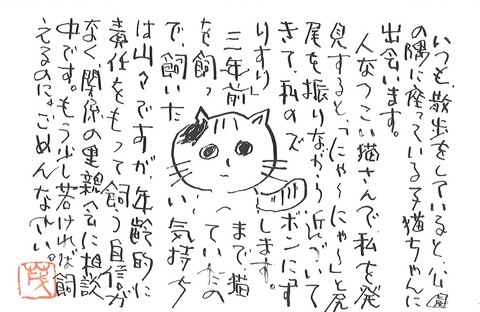 いつも、散歩をしていると、公園
の隅に座っている子猫ちゃんに
出会います。
人なつこい猫さんで、私を発
見すると、「にゃ〜にゃ〜」と尻
尾を振りながら近づいて
きて、私のズボンにす
りすりします。
三年前まで猫
を飼っていたの
で、飼いたい気持ち
は山々ですが、年齢的に
責任をもって飼う自信が
なく、関係の里親会に相談
中です。もう少し若ければ飼
えるのに。ごめんなさい。
茂